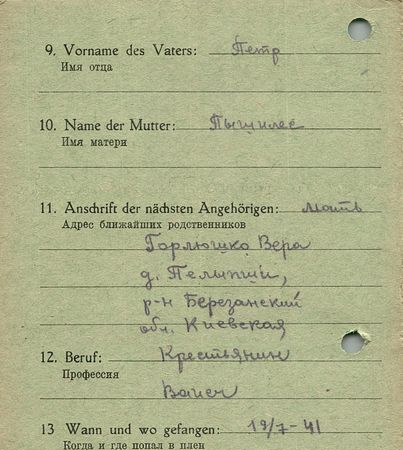 9. Vorname des Vaters: Петр
Имя отца
10. Name der Mutter:
Имя матери
11. Anschrift der nächsten Angehörigen: мать
Адрес ближайших родственников
Горлюшко Вера
д. Пелипщи,
р-н Березанский
обл. Киевская
12. Beruf: Крестьянин
Профессия
Bauer
13 Wann und wo gefangen: 19/7-41
Когда и где попал в плен